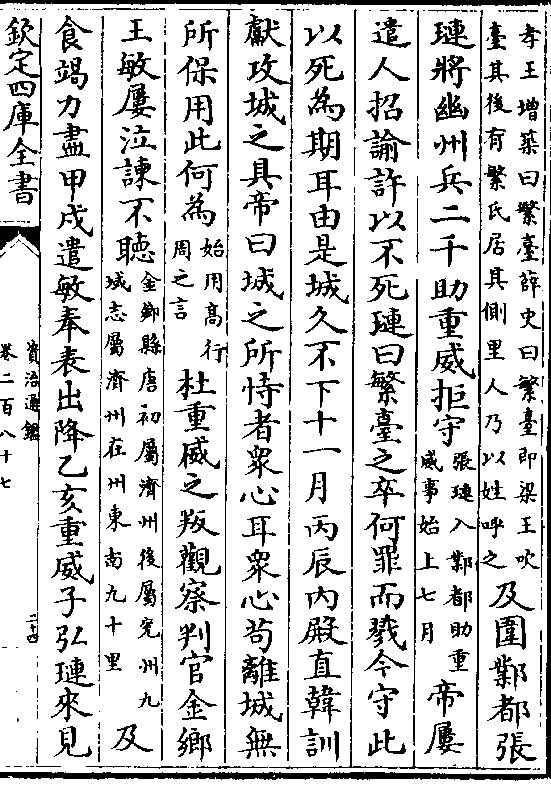 孝王増築曰繁臺薛史曰繁臺即梁王吹
臺其後有繁氏居其側里人乃以姓呼之
及圍鄴都張
璉將幽州兵二千助重威拒守
張璉入鄴都助重
威事始上七月
帝屢
遣人招諭許以不死璉曰繁臺之卒何罪而戮今守此
以死為期耳由是城久不下十一月丙辰内殿直韓訓
獻攻城之具帝曰城之所恃者衆心耳衆心苟離城無
所保用此何為
始用髙行
周之言
杜重威之叛觀察判官金鄉
王敏屢泣諫不聽
金鄉縣唐初屬濟州後屬兖州九
域志屬濟州在州東南九十里
及
食竭力盡甲戌遣敏奉表出降乙亥重威子弘璉來見
欽定四庫全書
資治通鑑
卷二百八十七
二十四